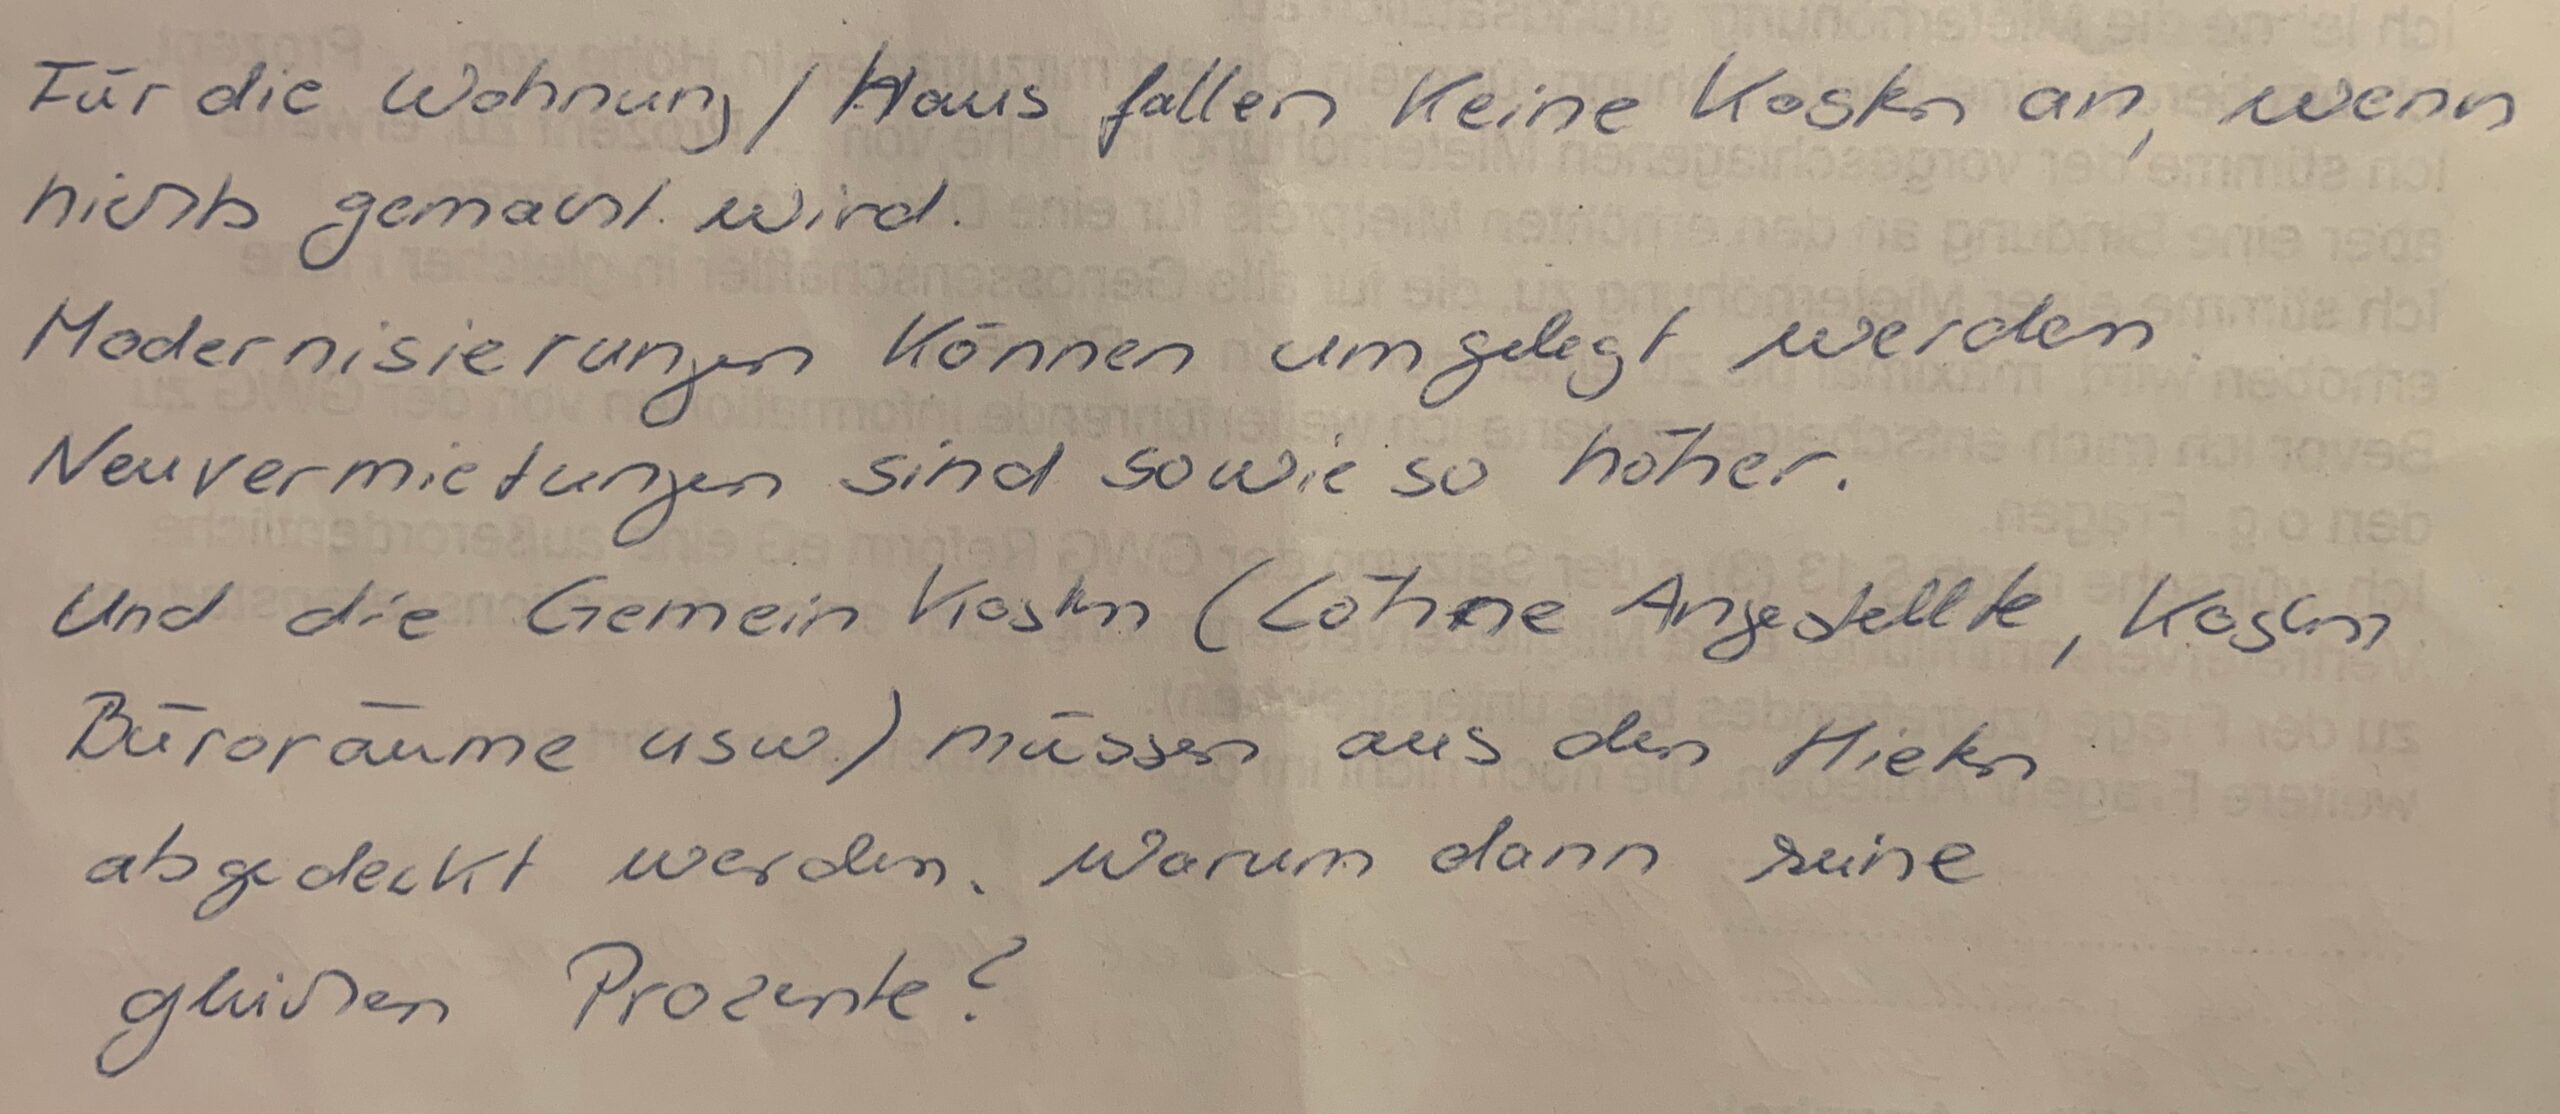 Für die Wohnung / Haus fallen keine Kosten an, wenn
nichts gemacht wird.
Modernisierungen können umgelegt werden
Neuvermietungen sind sowieso höher.
Und die Gemeinkosten (Löhne Angestellte, Kosten
Büroräume usw.) müssen aus den Mieten
abgedeckt werden. Warum dann
gleichen Prozente?